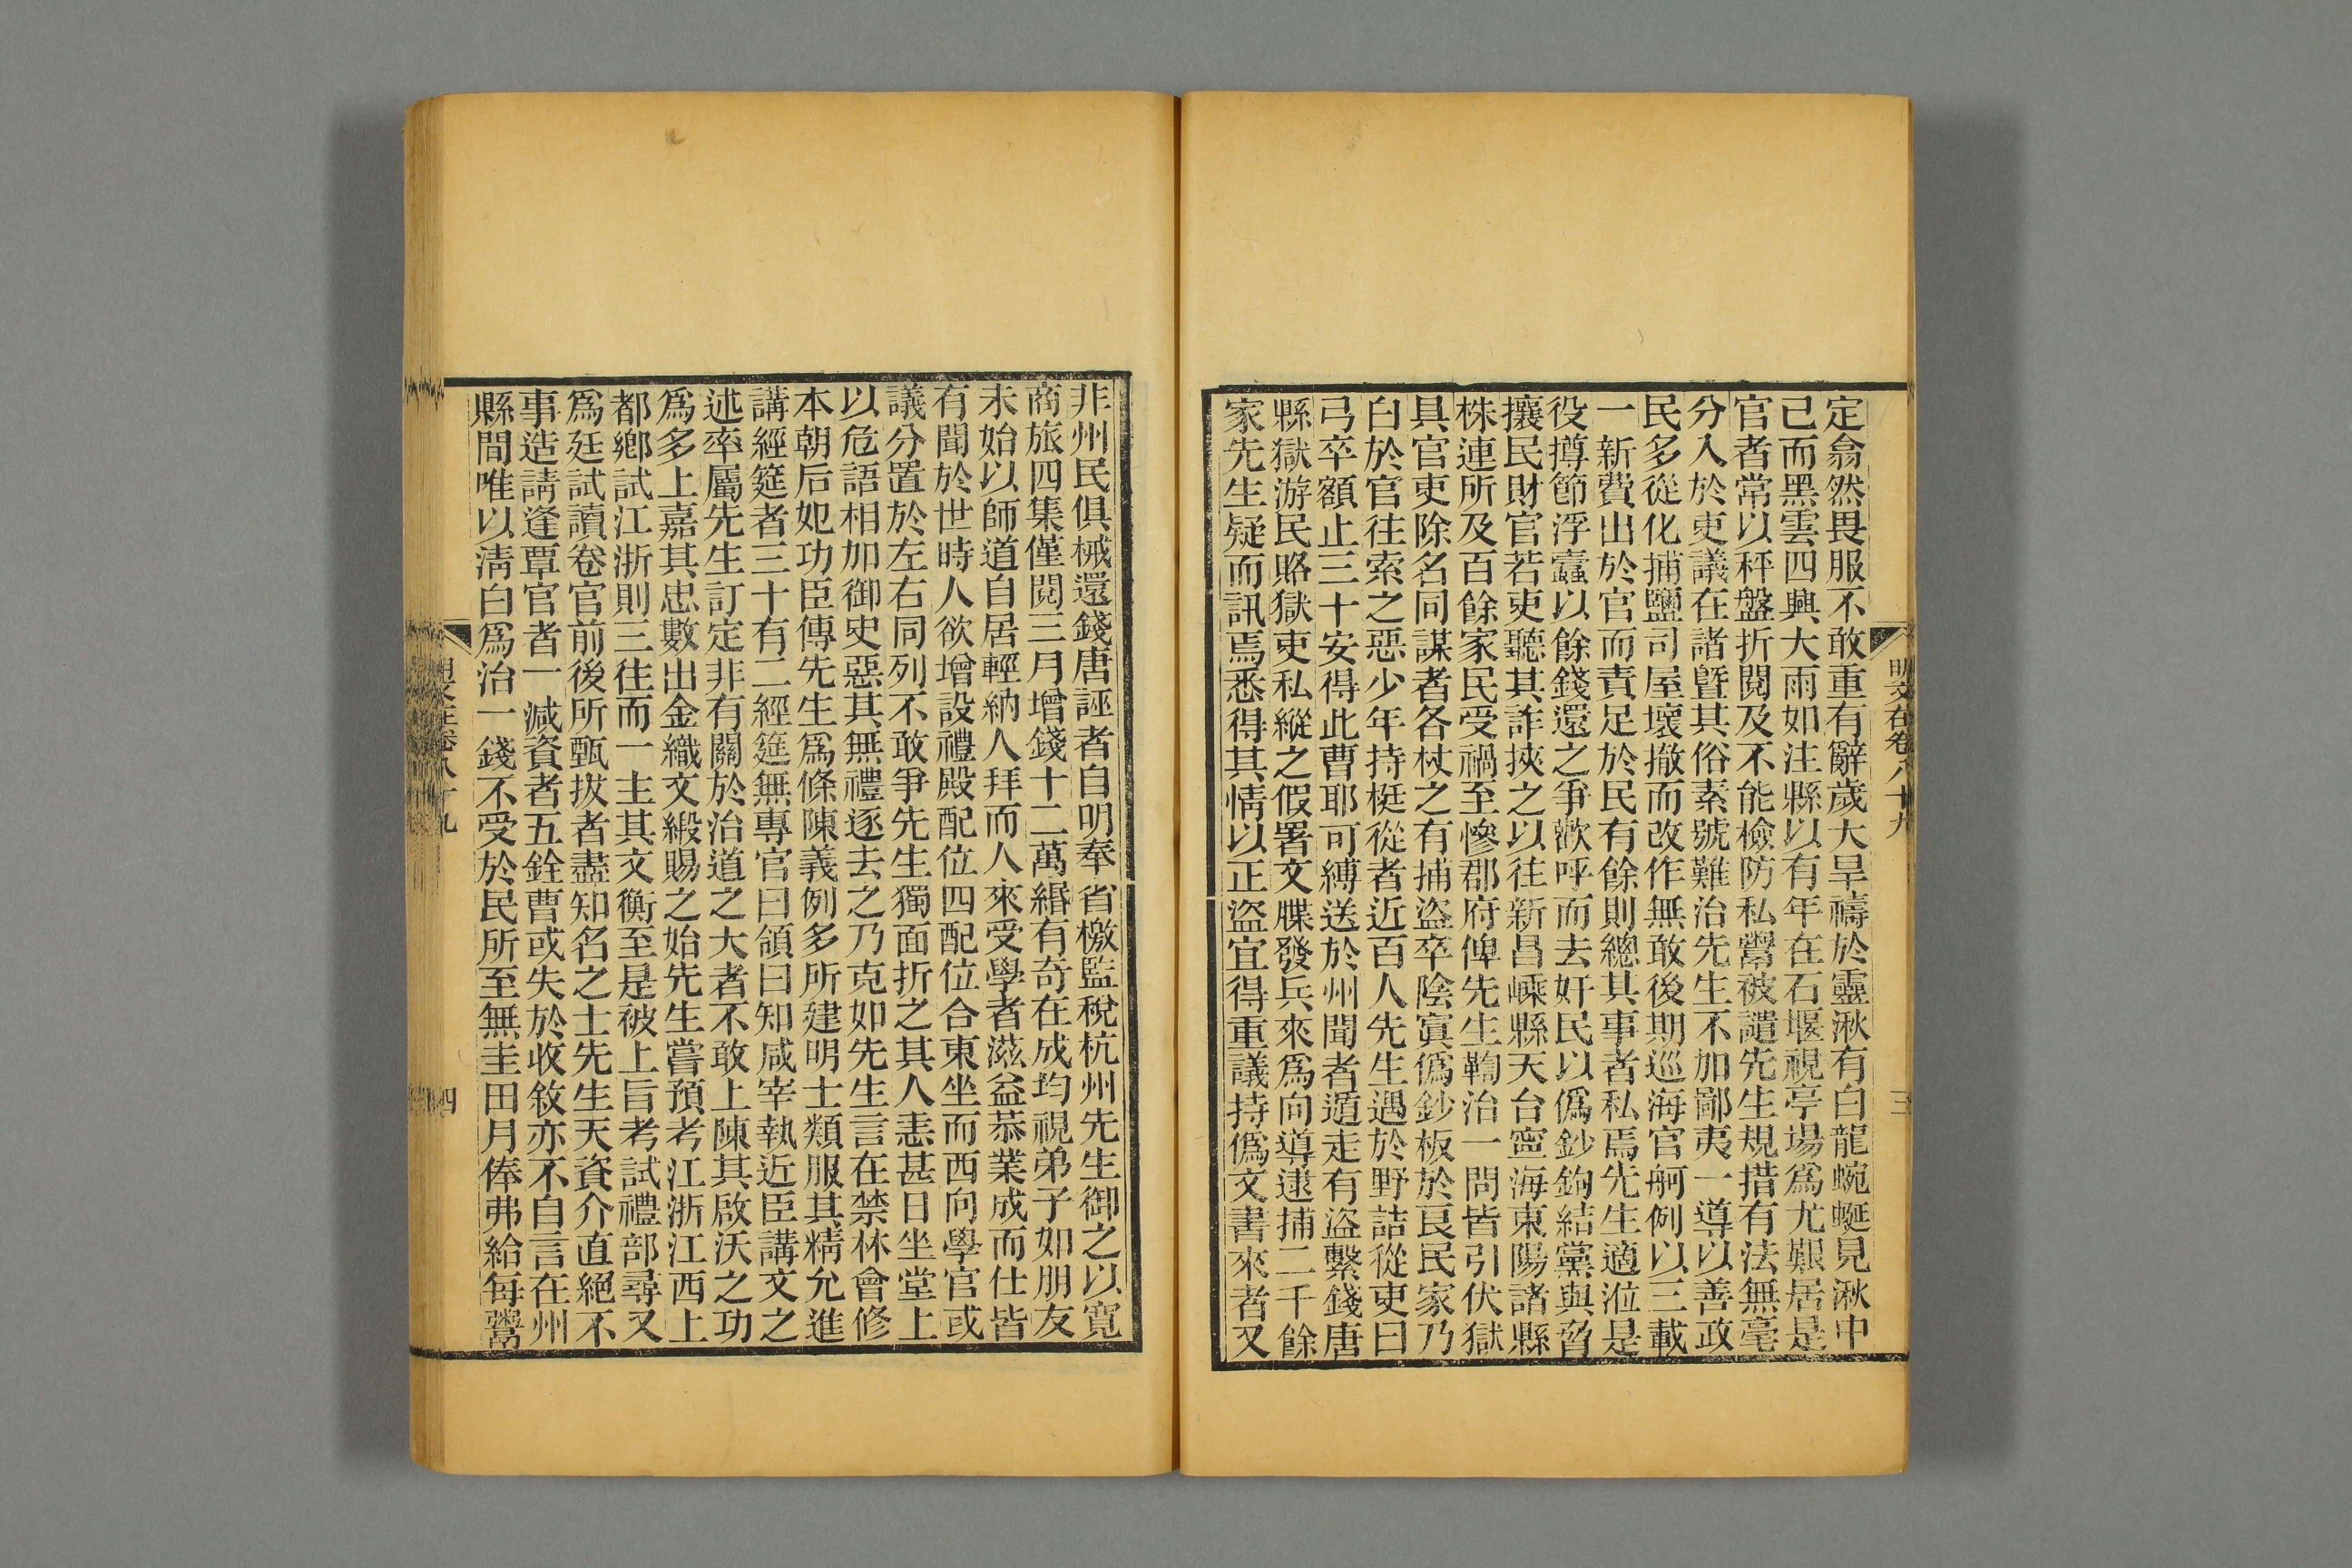 明文在卷八十九
三
定翕然畏服不敢重有辭歲大旱禱於靈湫有白龍蜿蜒見湫中
已而黑雲四興大雨如注縣以有年在石堰視亭場爲尤艱居是
官者常以秤盤折閱及不能檢防私鬻被譴先生規措有法無毫
分入於吏議在諸曁其俗素號難治先生不加鄙夷一導以善政
民多從化捕鹽司屋壞撤而改作無敢後期巡海官舸例以三載
一新費出於官而責足於民有餘則總其事者私焉先生適涖是
役撙節浮蠹以餘錢還之爭歡呼而去奸民以僞鈔鉤結黨與脅
攘民財官若吏聽其詐挾之以往新昌嵊縣天台寧海東陽諸縣
株連所及百餘家民受禍至慘郡府俾先生鞫治一問皆引伏獄
具官吏除名同謀者各杖之有捕盜卒陰寘僞鈔板於良民家乃
白於官往索之惡少年持梃從者近百人先生遇於野詰從吏曰
弓卒額止三十安得此曹耶可縛送於州聞者遁走有盜繫錢唐
縣獄游民賂獄吏私縱之假署文牒發兵來爲向導逮捕二千餘
家先生疑而訊焉悉得其情以正盜宜得重議持僞文書來者又
非州民俱械還錢唐誣者自明奉省檄監稅杭州先生御之以寬
商旅四集僅閱三月增錢十二萬緡有奇在成均視弟子如朋友
未始以師道自居輕納人拜而人來受學者滋益恭業成而仕皆
有聞於世時人欲增設禮殿配位四配位合東坐而西向學官或
議分置於左右同列不敢爭先生獨面折之其人恚甚日坐堂上
以危語相加御史惡其無禮逐去之乃克如先生言在禁林會修
本朝后妃功臣傳先生爲條陳義例多所建明士類服其精允進
講經筵者三十有二經筵無專官曰領曰知咸宰執近臣講文之
述率屬先生訂定非有關於治道之大者不敢上陳其啟沃之功
爲多上嘉其忠數出金織文緞賜之始先生嘗預考江浙江西上
都鄕試江浙則三往而一主其文衡至是被上旨考試禮部尋又
爲廷試讀卷官前後所甄拔者盡知名之士先生天資介直絕不
事造請逢覃官者一減資者五銓曹或失於收敘亦不自言在州
縣間唯以淸白爲治一錢不受於民所至無圭田月俸弗給每鬻
明文在卷八十九
四